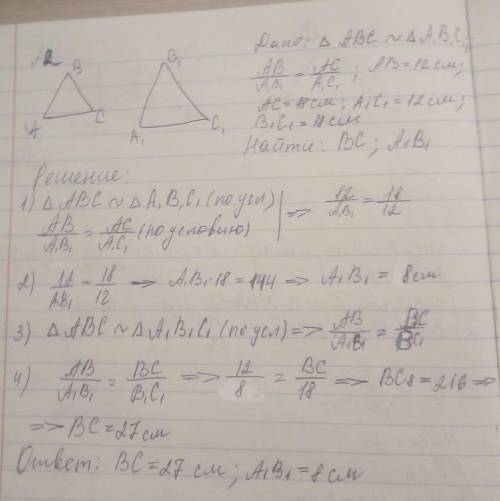 №2
B
A
C
B₁
A₁
C₁
Дано: △ ABC ~ △ A₁B₁C₁;
AB/A₁B₁ = AC/A₁C₁; AB = 12 см;
AC = 18 см; A₁C₁ = 12 см;
B₁C₁ = 18 см
Найти: BC; A₁B₁
Решение:
1) △ ABC ~ △ A₁B₁C₁ (по усл)
AB/A₁B₁ = AC/A₁C₁ (по условию)
=> 12/A₁B₁ = 18/12
2) 12/A₁B₁ = 18/12 => A₁B₁·18 = 144 => A₁B₁ = 8 см
3) △ ABC ~ △ A₁B₁C₁ (по усл) => AB/A₁B₁ = BC/BC₁
4) AB/A₁B₁ = BC/B₁C₁ => 12/8 = BC/18 => BC8 = 216 =>
=> BC = 27 см
Ответ: BC = 27 см; A₁B₁ = 8 см